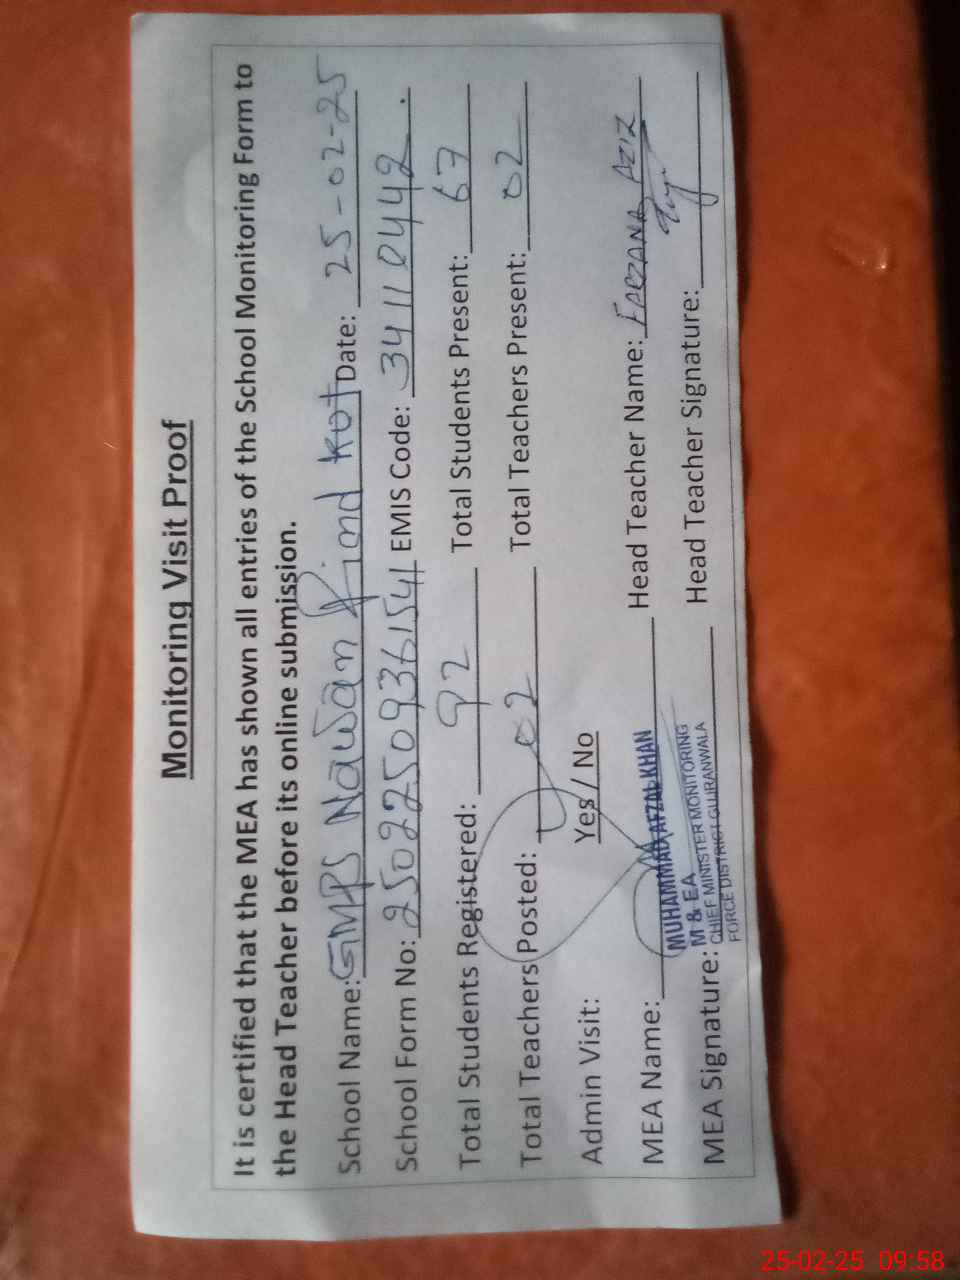 Monitoring Visit Proof
It is certified that the MEA has shown all entries of the School Monitoring Form to
the Head Teacher before its online submission.
School Name: GMPS Nawan Pind Kot Date: 25-02-25
School Form No: 25022509361541 EMIS Code: 34110442.
Total Students Registered: 92 Total Students Present: 67
Total Teachers Posted: 02 Total Teachers Present: 02
Admin Visit: Yes / No
MEA Name: Head Teacher Name: FARZANA AZIZ
MUHAMMAD AFZAL KHAN
M & EA
MEA Signature: Head Teacher Signature:
CHIEF MINISTER MONITORING
FORCE DISTRICT GUJRANWALA
25-02-25 09:58